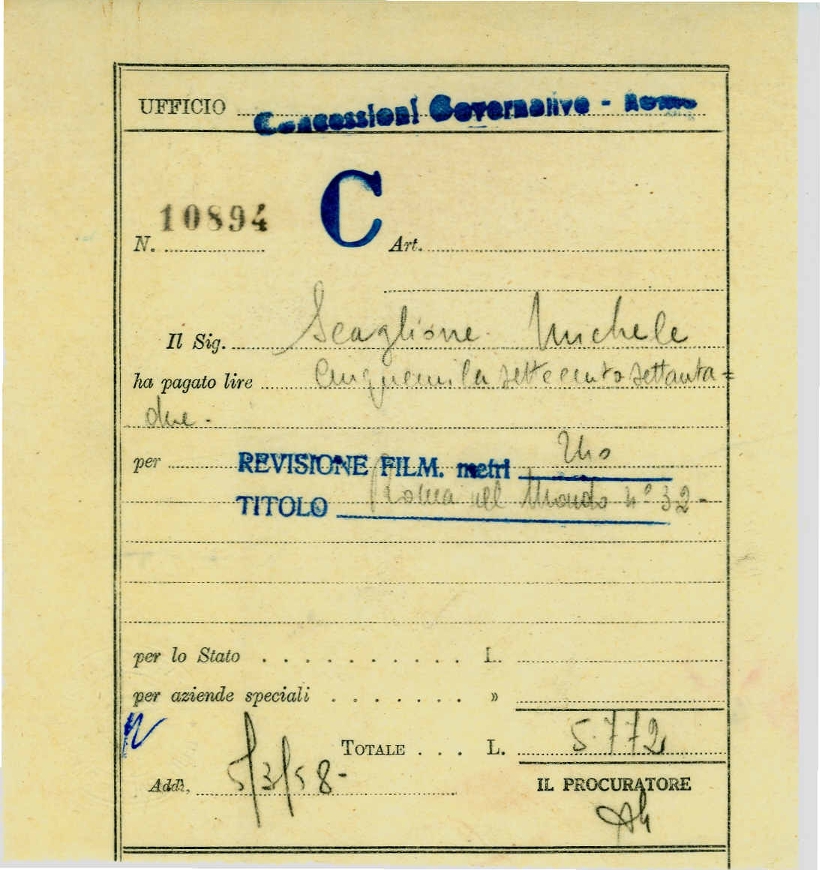 UFFICIO Concessioni Governative - Roma
N. 10894 C Art.
Il Sig. Scaglione Michele
ha pagato lire Cinquemila settecento settanta=
due.
per REVISIONE FILM. metri
TITOLO Roma nel Mondo n° 32-
per lo Stato . . . . . . . . . . L.
per aziende speciali . . . . . . . »
TOTALE . . . L. 5.772
Addì, 5/3/58-
IL PROCURATORE